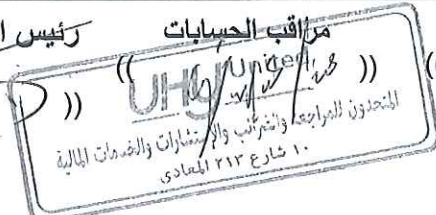 مراقب الحسابات رئيس ا
(( UHY United ))
المتحدون للمراجعة والضرائب والإستشارات والخدمات المالية
١٠ شارع ٢١٣ المعادى